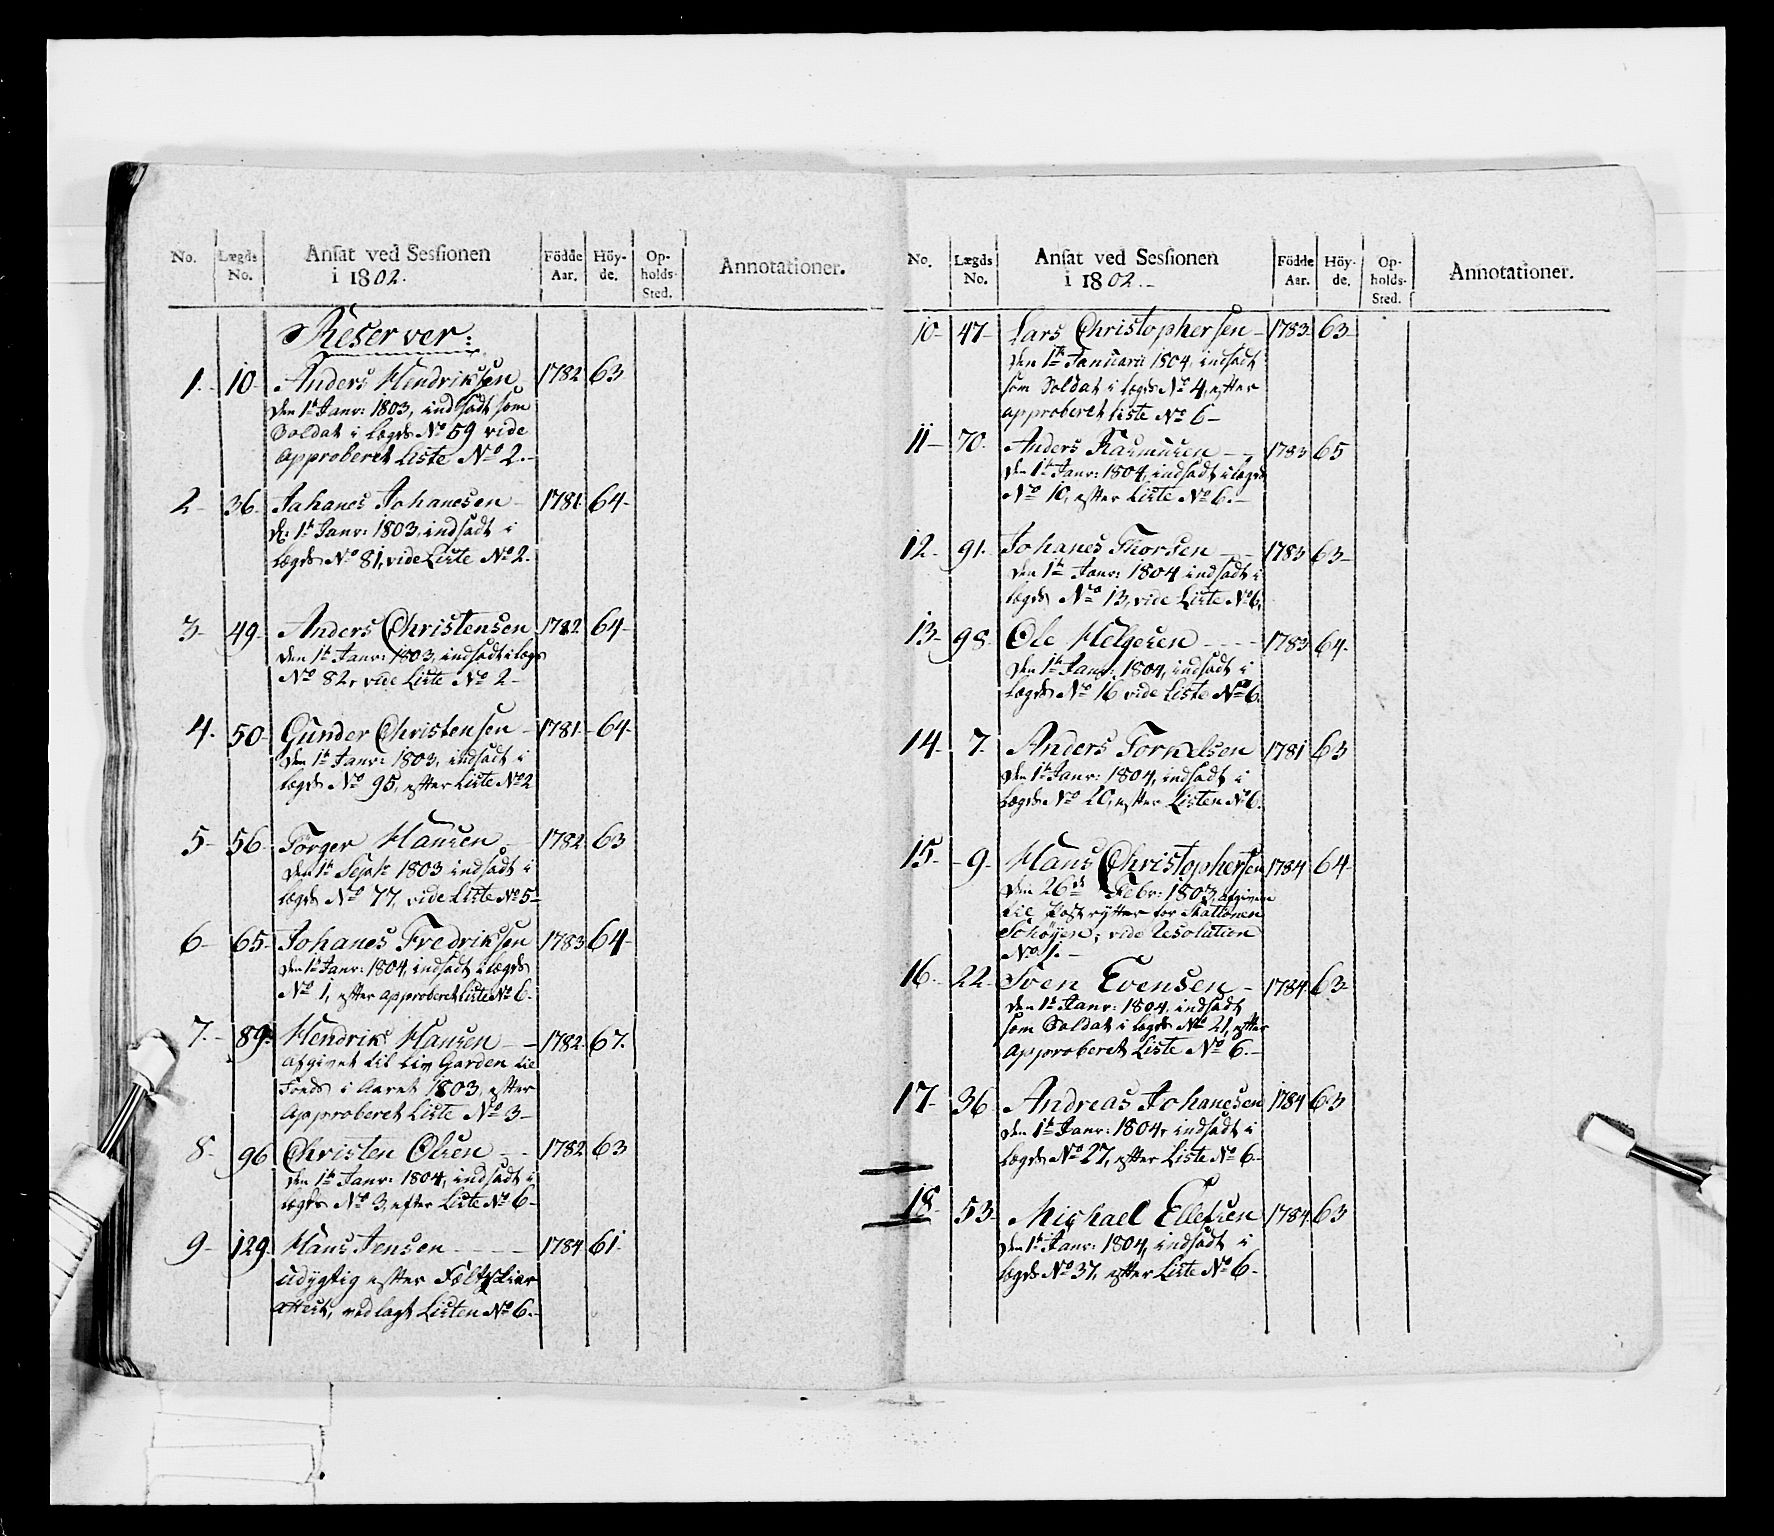 No. Lægds No. Ansat ved Sessionen i 1802. Födde Aar. Höyde. Opholds-Sted. Annotationer.
Reserver:
1. 10. Anders Hendriksen 1782 63
den 1te Janr: 1803, indsadt som
Soldat i Lægds No 59 vide
approberet Liste No 2.-
2- 36. Johanes Johanesen - 1781. 64-
d: 1te Janr: 1803, indsadt i
Lægds No 81, vide Liste No 2.
3- 49. Anders Christensen 1782 64-
den 1te Janr: 1803, indsadt i Lægds
No 82, vide Liste No 2-
4. 50- Gunder Christensen - 1781. 64-
den 1te Janr: 1803, indsadt i
Lægds No 95, efter Liste No 2
5- 56. Torger Hansen - 1782 63
den 1te Septr 1803 indsadt i
Lægds No 77, vide Liste No 5-
6- 65- Johanes Fredriksen 1783 64-
den 1te Janr: 1804, indsadt i Lægds
No 1, efter approberet Liste No 6.
7.- 89. Hendrik Hansen - 1782. 67.
afgivet til Liv Garden til
Fods i Aaret 1803, efter
approberet Liste No 3-
8- 96 Christen Olsen - - 1782 63
den 1te Janr: 1804, indsadt i
Lægds No 3, efter Liste No 6-
9- 129. Hans Jensen - - - 1784 61.
udygtig efter Feltskiær
attest, vedlagt Listen No 6.-
No. Lægds No. Ansat ved Sessionen i 1802.- Födde Aar. Höyde. Opholds-Sted. Annotationer.
10- 47- Lars Christophersen - 1783. 63-
den 1te Januarii 1804, indsadt
som Soldat i Lægds No 4, efter
approberet Liste No 6-
11- 70. Anders Rasmusen - - 1783 65
den 1te Janr: 1804, indsadt i Lægds
No 10, efter Liste No 6.-
12- 91. Johanes Thorsen - - 1783 63-
den 1te Janr: 1804 indsadt i
Lægds No 13, vide Liste No 6.
13- 98. Ole Helgesen - - - 1783 64-
den 1te Janr: 1804, indsadt i
Lægds No 16 vide Liste No 6.
14- 7. Anders Torkelsen 1781 63
den 1te Janr: 1804, indsadt i
Lægds No 20, efter Listen No 6.
15- - 9- Hans Christophersen 1784 64-
den 26de Febr: 1803, afgiven
til Postrytter for Stattionen
Schöyen, vide Resolution
No 1.-
16- 22- Sven Evensen - 1784. 63-
den 1te Janr: 1804, indsadt
som Soldat i Lægds No 21, efter
approberet Liste No 6.-
17- 36 Andreas Johanesen 1784 63
den 1te Janr: 1804, indsadt i
Lægds No 27, efter Liste No 6-
18- 53- Michael Ellefsen 1784. 63
den 1te Janr: 1804, indsadt i
Lægds No 37, efter Liste No 6-